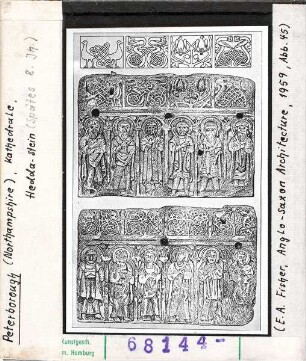 Peterborough (Northampshire), Kathedrale,
Hedda-Stein (spätes 8. Jh.)
Kunstgesch.
m. Hamburg
68144-
(E.A. Fisher, Anglo-Saxon Architecture, 1959, Abb. 45)